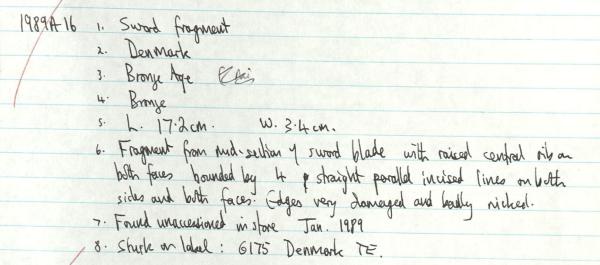 1989A16 1. Sword fragment
2. Denmark
3. Bronze Age
4. Bronze
5. L. 17.2cm. W. 3.4cm.
6. Fragment from mid-section of sword blade with raised central rib on
both faces bounded by 4 straight parallel incised lines on both
sides and both faces. Edges very damaged and badly nicked.
7. Found unaccessioned in store Jan. 1989
8. Stuck on label: 6175 Denmark TE.